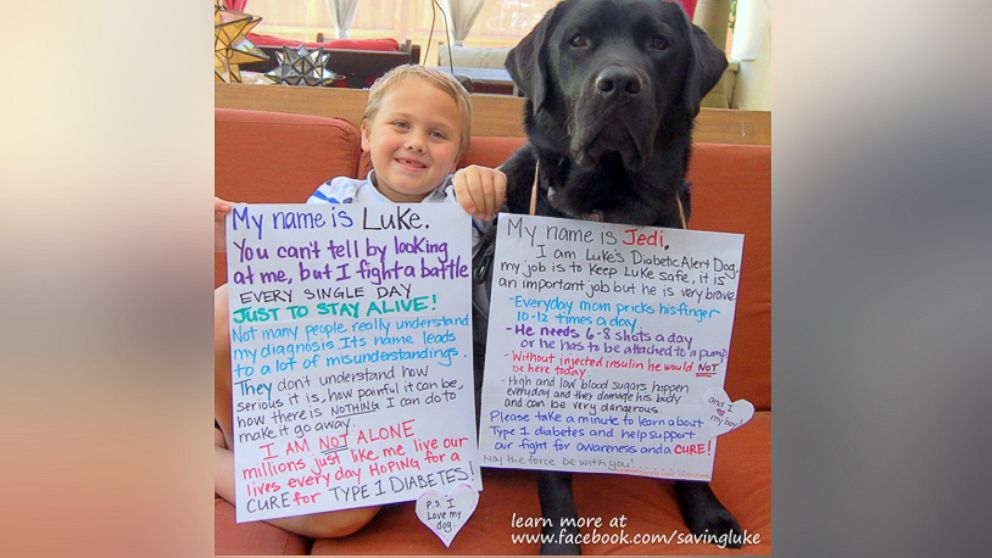 My name is Luke.
You can't tell by looking
at me, but I fight a battle
EVERY SINGLE DAY
JUST TO STAY ALIVE!
Not many people really understand
my diagnosis. Its name leads
to a lot of misunderstandings.
They don't understand how
serious it is, how painful it can be,
how there is NOTHING I can do to
make it go away.
I AM NOT ALONE
millions just like me live our
lives every day HOPING for a
CURE for TYPE 1 DIABETES!
P.S. I
Love my
dog.
My name is Jedi.
I am Luke's Diabetic Alert Dog.
my job is to keep Luke safe, it is
an important job but he is very brave
-Everyday mom pricks his finger
10-12 times a day.
-He needs 6-8 shots a day
or he has to be attached to a pump
-Without injected insulin he would NOT
be here today.
-High and low blood sugars happen
everyday and they damage his body
and can be very dangerous.
Please take a minute to learn about
Type 1 diabetes and help support
our fight for awareness and a CURE!
May the force be with you!......
and I
my boy!
learn more at
www.facebook.com/savingluke